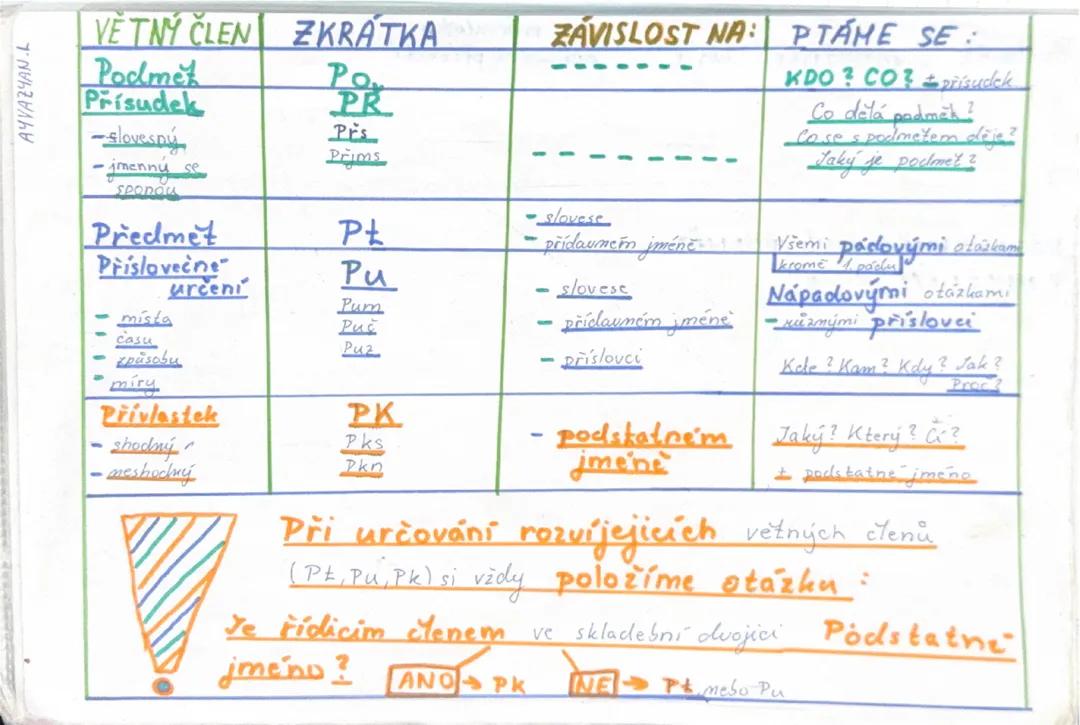 AYVAZYAN.L
VĚTNÝ ČLEN ZKRÁTKA ZÁVISLOST NA: PTÁME SE:
Podmět Po KDO? CO? + přísudek
Přísudek PŘ Co dělá podmět?
- slovesný Přs Co se s podmětem děje?
- jmenný se Přjms Jaký je podmět?
sponou
Předmět Pt - slovese
- přídavném jméně Všemi pádovými otázkami
kromě 1. pádu
Příslovečné Pu - slovese Nápadovými otázkami
určení - přídavném jméně - různými příslovci
- místa Pum - příslovci Kde? Kam? Kdy? Jak?
- času Puč Proč?
- způsobu Puz
- míry
Přívlastek PK - podstatném Jaký? Který? Čí?
- shodný Pks jméně + podstatné jméno
- neshodný Pkn
Při určování rozvíjejicích větných členů
(Pt, Pu, Pk) si vždy položíme otázku:
Je řídicím členem ve skladební dvojici Podstatné
jméno?
ANO → Pk NE → Pt nebo Pu